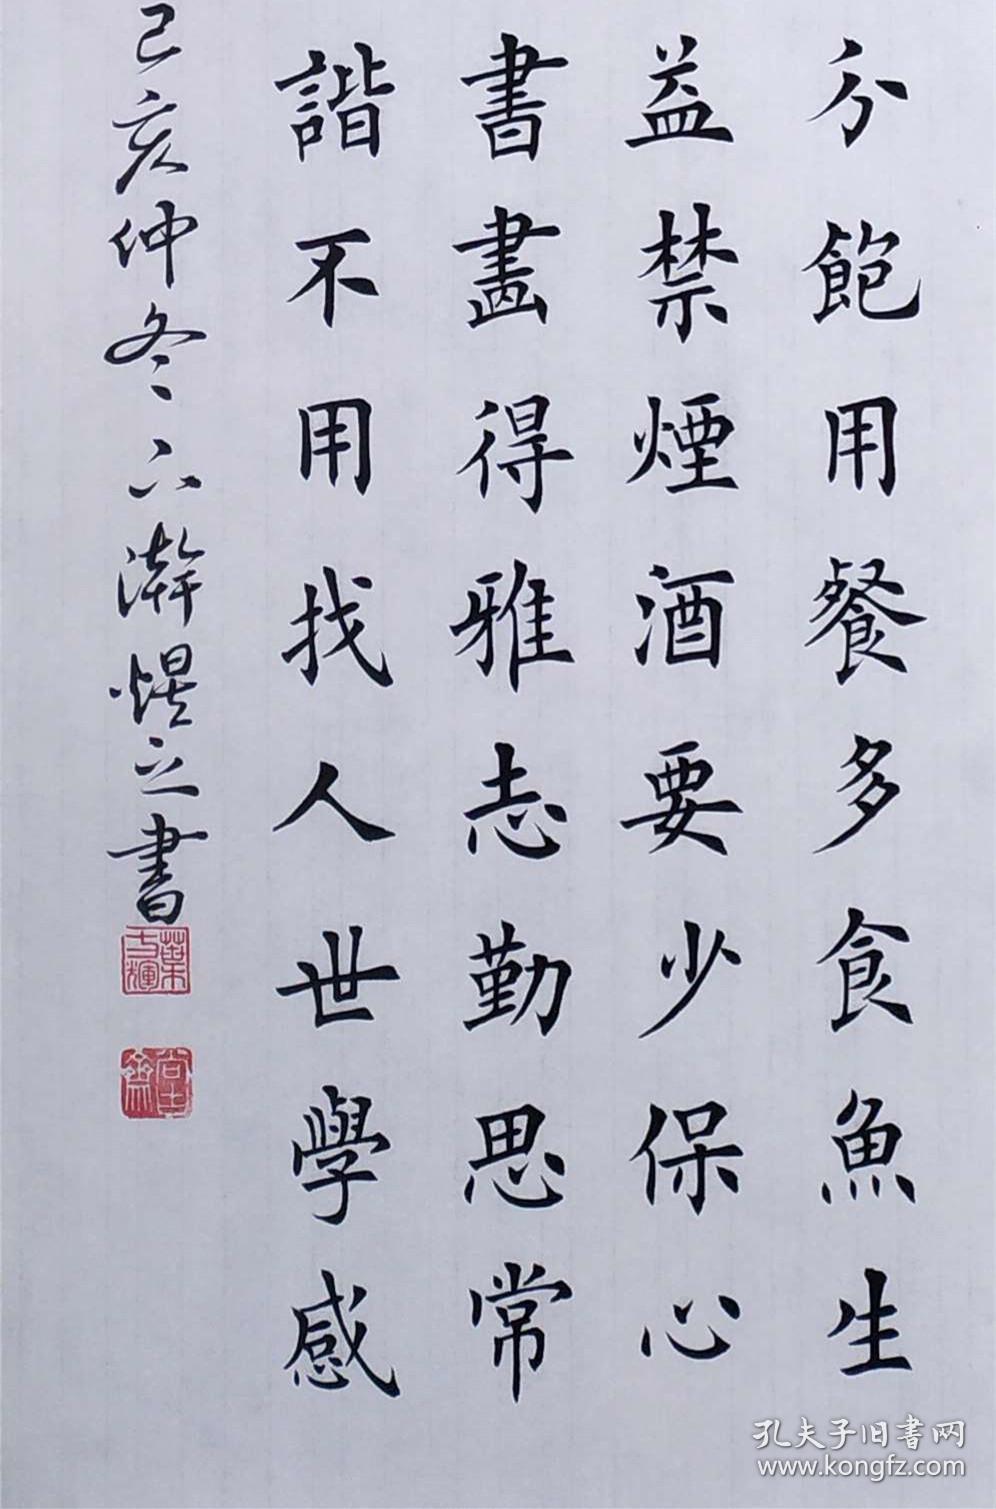 分飽用餐多食魚生
益禁煙酒要少保心
書畫得雅志勤思常
諧不用找人世學感
己亥仲冬 六瀚煜之書
葉方輝
孔夫子旧書网
www.kongfz.com